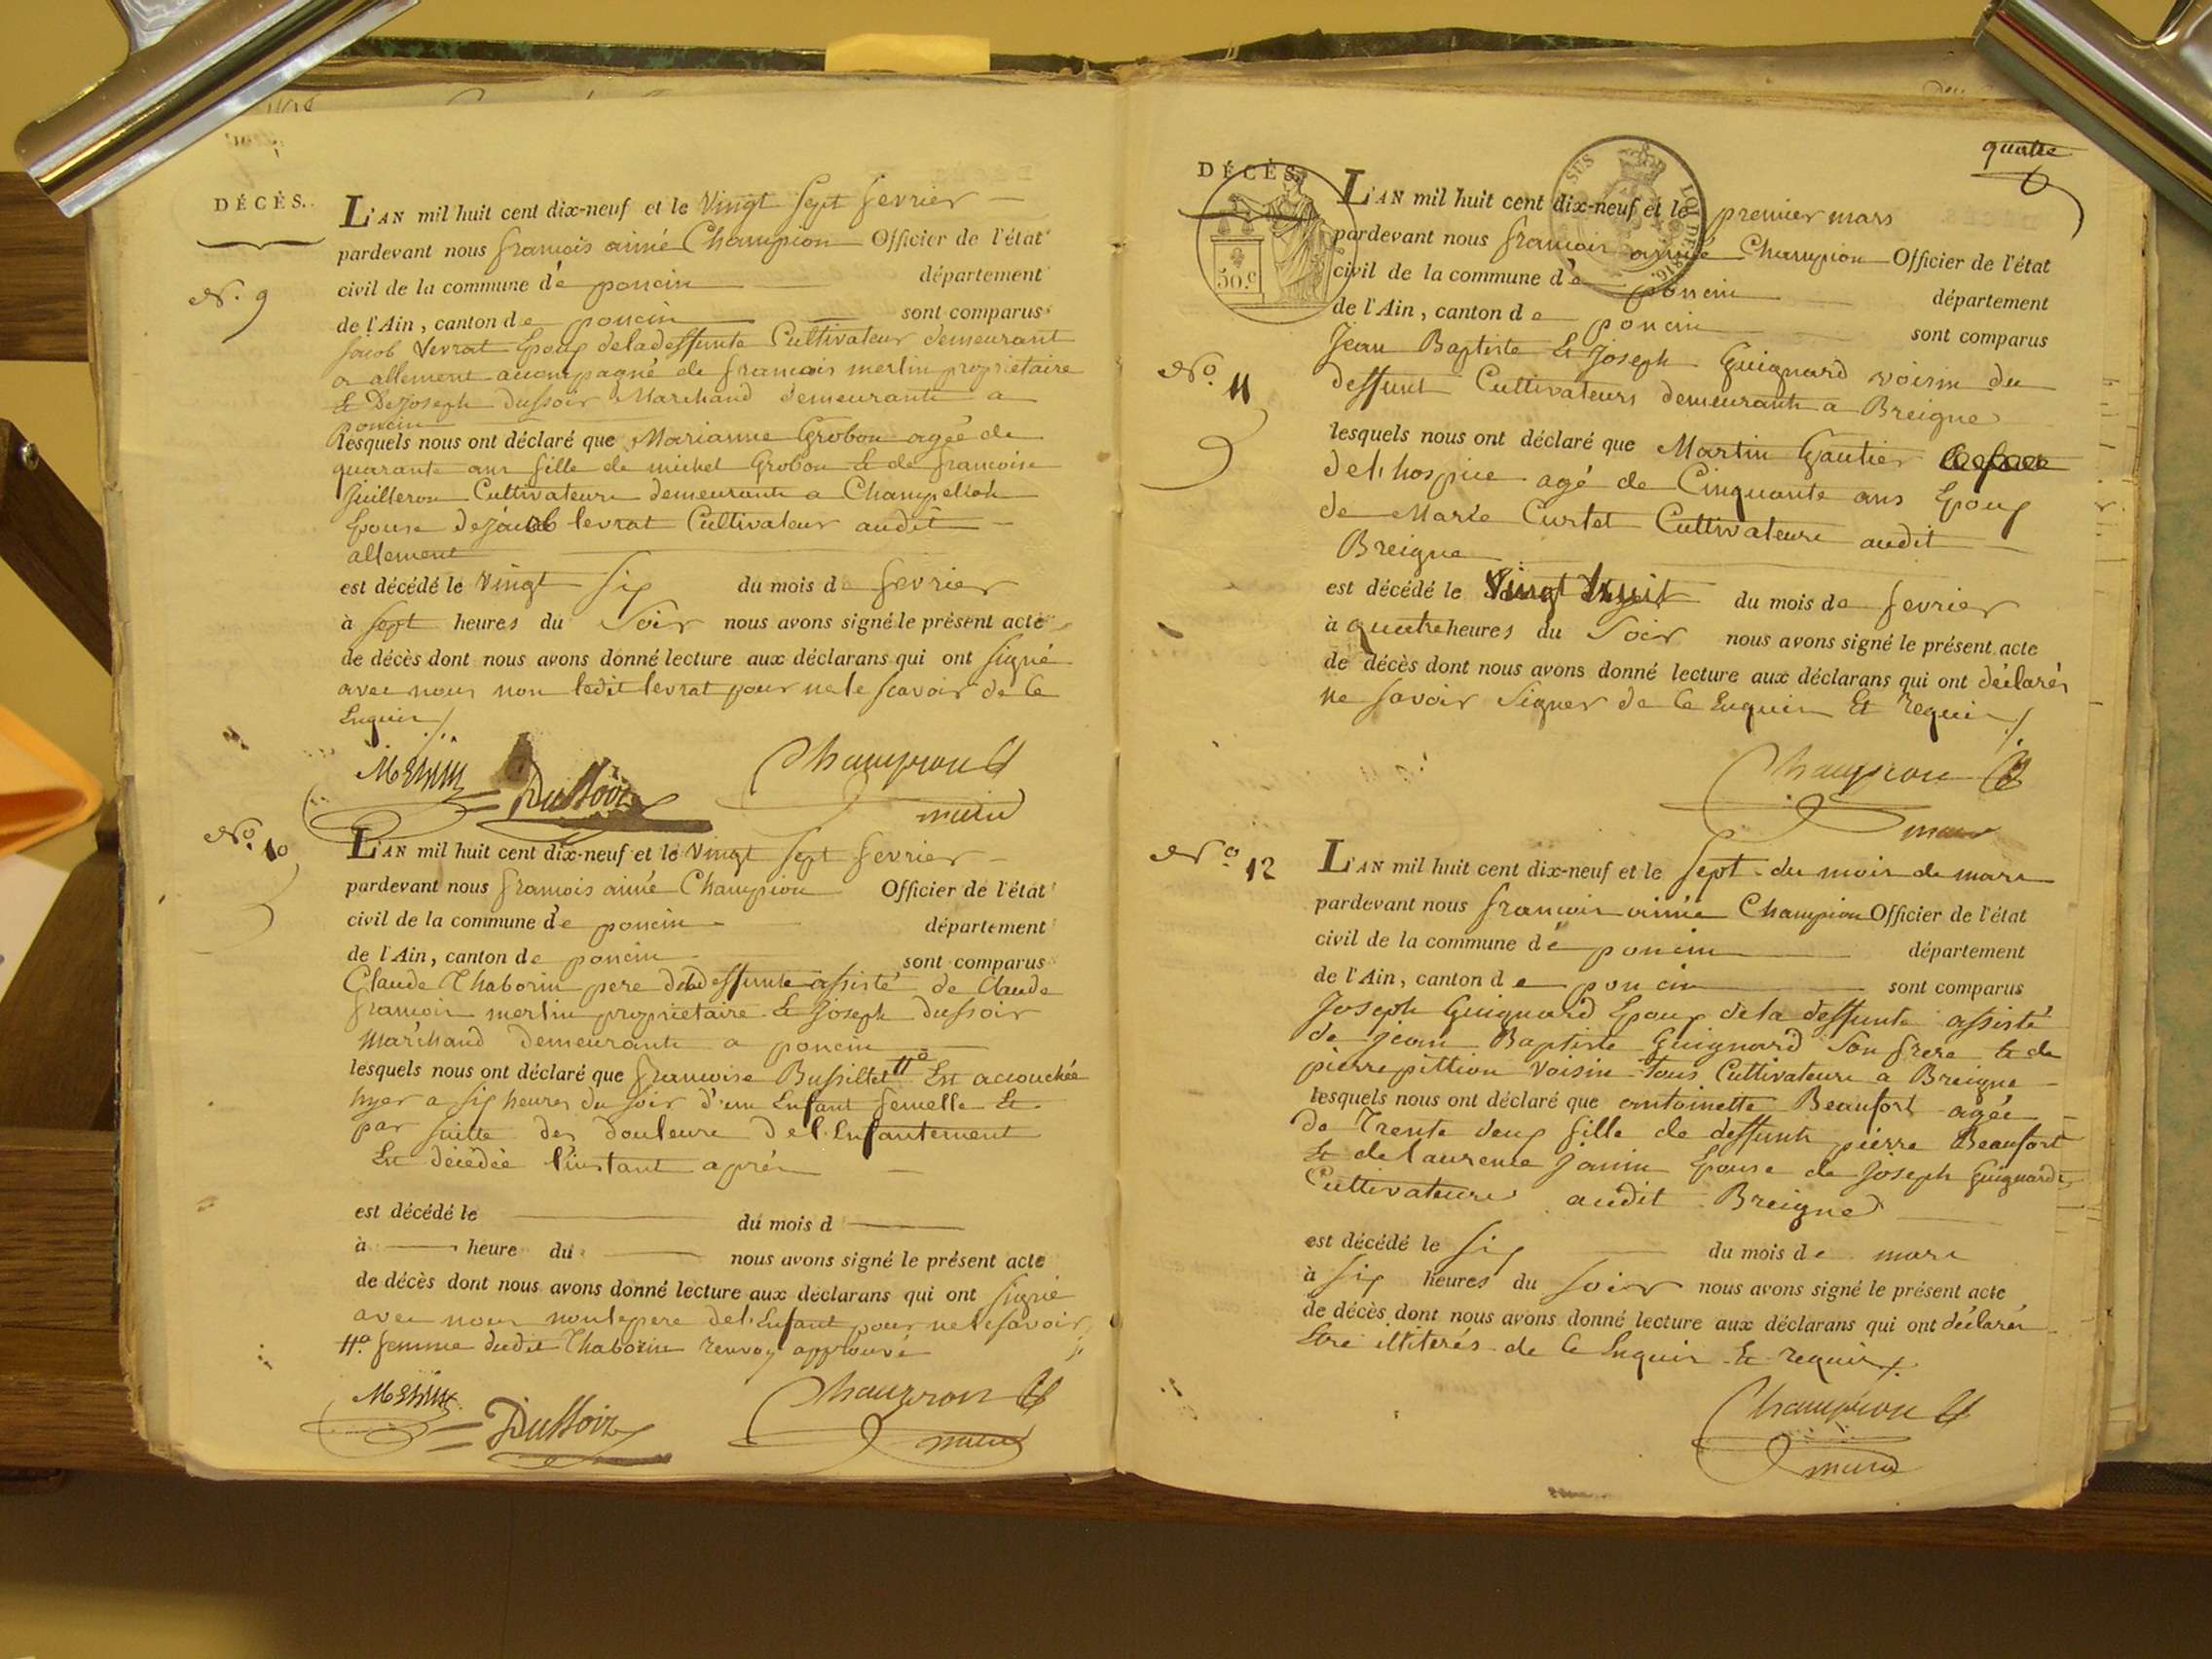 DÉCÈS.
L'AN mil huit cent dix-neuf et le Vingt Sept fevrier
pardevant nous francois aimé Champion Officier de l'état
N.º 9
civil de la commune de poncin département
de l'Ain, canton de poncin sont comparus
Jacob Levrat Epoux de la deffunte Cultivateur demeurant
a allement accompagné de francois merlin propriétaire
Et De Joseph dussoir Marchand demeurants a
poncin
lesquels nous ont déclaré que Marianne Grobon agée de
quarante ans fille de michel Grobon Et de francoise
Juilleron Cultivateurs demeurants a
Epouse de jacob levrat Cultivateur audit
allement
est décédé le Vingt Six du mois de fevrier
à Sept heures du Soir nous avons signé le présent acte
de décès dont nous avons donné lecture aux déclarans qui ont signé
avec nous non ledit levrat pour ne le scavoir de Ce
Enquis
Merlin Dussoir Champion
maire
N.º 10
L'AN mil huit cent dix-neuf et le Vingt Sept fevrier
pardevant nous francois aimé Champion Officier de l'état
civil de la commune de poncin département
de l'Ain, canton de poncin sont comparus
Claude Thaborin pere de la deffunte assisté de Claude
francois merlin propriétaire Et Joseph dussoir
Marchand demeurants a poncin
lesquels nous ont déclaré que francoise Bussillet Est accouchée
hyer a Six heures du soir d'un Enfant femelle Et
par suitte des douleurs de l'Enfantement
Est décédée l'instant aprés
est décédé le du mois d
à heure du nous avons signé le présent acte
de décès dont nous avons donné lecture aux déclarans qui ont signé
avec nous non le pere de l'Enfant pour ne le savoir
femme dudit Thaborin renvoy approuvé
Merlin Dussoir Champion
maire
quatre
DÉCÈS.
50.c
SUS LOI DE 1816.
L'AN mil huit cent dix-neuf et le premier mars
pardevant nous francois aimé Champion Officier de l'état
civil de la commune de poncin département
de l'Ain, canton de poncin sont comparus
N.º 11
Jean Baptiste Et Joseph Guignard voisin du
deffunt Cultivateurs demeurants a Breigne
lesquels nous ont déclaré que Martin Gautier
de l'hospice agé de Cinquante ans Epoux
de Marie Curtet Cultivateurs audit
Breigne
est décédé le Vingt huit du mois de fevrier
à quatre heures du Soir nous avons signé le présent acte
de décès dont nous avons donné lecture aux déclarans qui ont déclarés
ne savoir Signer de Ce Enquis Et requis
Champion
maire
N.º 12
L'AN mil huit cent dix-neuf et le Sept du mois de mars
pardevant nous francois aimé Champion Officier de l'état
civil de la commune de poncin département
de l'Ain, canton de poncin sont comparus
Joseph Guignard Epoux de la deffunte assisté
de jean Baptiste Guignard Son frere Et de
pierre pittion voisin tous Cultivateurs a Breigne
lesquels nous ont déclaré que antoinette Beaufort agée
de Trente deux fille de deffunts pierre Beaufort
Et de laurence Janin Epouse de Joseph Guignard
Cultivateurs audit Breigne
est décédé le Six du mois de mars
à Six heures du Soir nous avons signé le présent acte
de décès dont nous avons donné lecture aux déclarans qui ont déclarés
Etre illiterés de Ce Enquis Et requis
Champion
maire